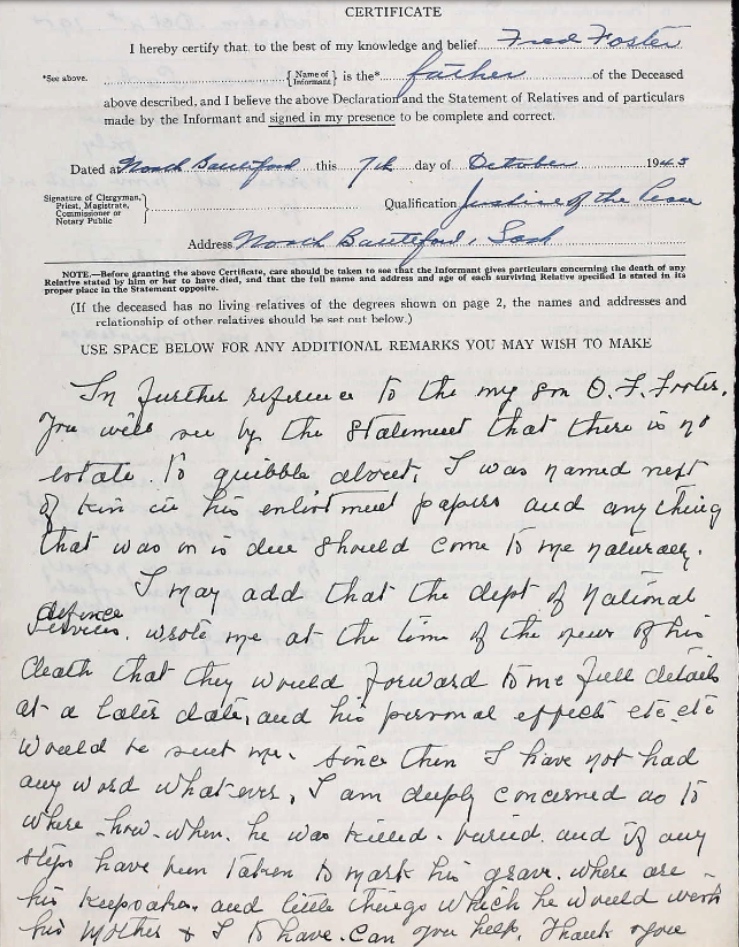 CERTIFICATE
I hereby certify that to the best of my knowledge and belief Fred Foster
*See above. {Name of Informant} is the* father of the Deceased
above described, and I believe the above Declaration and the Statement of Relatives and of particulars
made by the Informant and signed in my presence to be complete and correct.
Dated at North Battleford this 7th day of October 1945
Signature of Clergyman, Priest, Magistrate, Commissioner or Notary Public } Qualification Justice of the Peace
Address North Battleford, Sask
NOTE.—Before granting the above Certificate, care should be taken to see that the Informant gives particulars concerning the death of any
Relative stated by him or her to have died, and that the full name and address and age of each surviving Relative specified is stated in its
proper place in the Statement opposite.
(If the deceased has no living relatives of the degrees shown on page 2, the names and addresses and
relationship of other relatives should be set out below.)
USE SPACE BELOW FOR ANY ADDITIONAL REMARKS YOU MAY WISH TO MAKE
In further reference to the my son O. F. Foster.
You will see by the statement that there is no
estate. to quibble about, I was named next
of kin in his enlistment papers and anything
that was or is due should come to me naturally.
I may add that the dept of National
defence
Services. wrote me at the time of the news of his
death that they would forward to me full details
at a later date, and his personal effects etc. etc
would be sent me. since then I have not had
any word whatever, I am deeply concerned as to
where - how - when. he was killed - buried. and if any
steps have been taken to mark his grave. where are -
his keepsakes. and little things which he would wish
his Mother & I to have. Can you help. Thank you